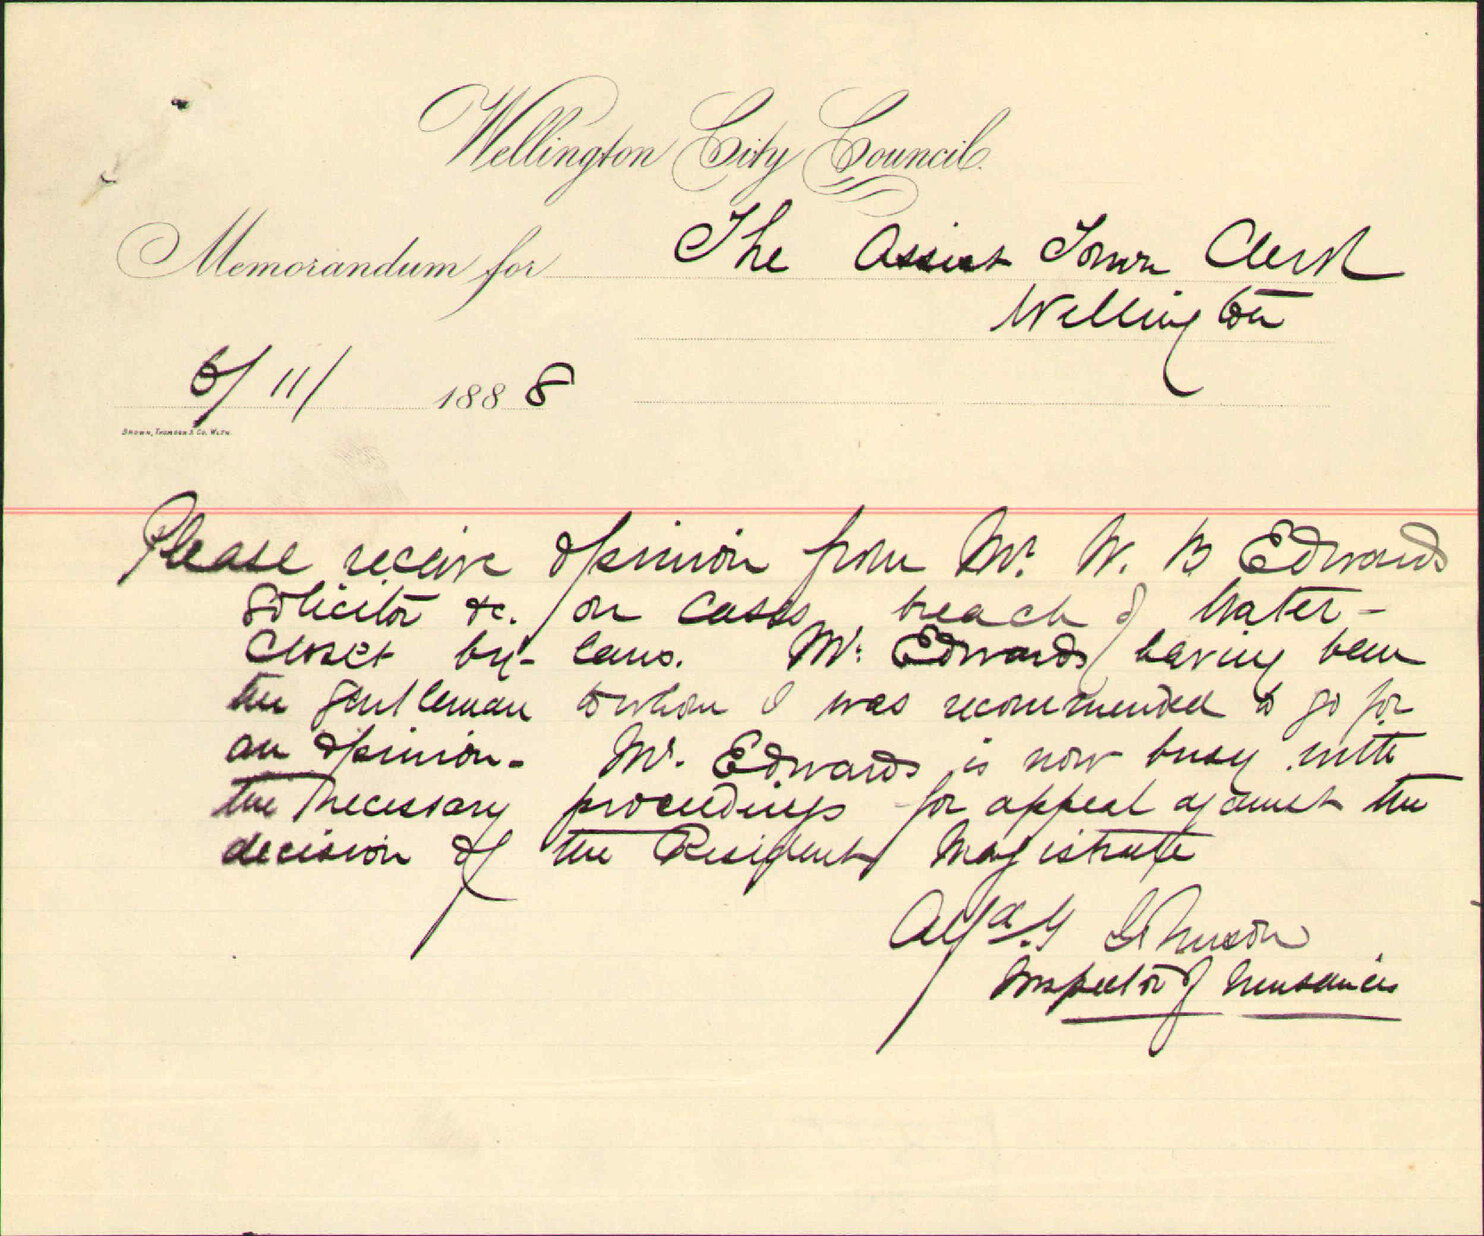 Wellington City Council.
Memorandum for The Assist Town Clerk
Wellington
6/11/ 1888
Brown, Thomson & Co. Wgtn.
Please receive opinion from Mr. W. B Edwards
Solicitor &c. on cases breach of Water-
Closet by-laws. Mr. Edwards having been
the gentleman to whom I was recommended to go for
an opinion- Mr. Edwards is now busy with
the necessary proceedings for appeal against the
decision of the Resident Magistrate
Johnson
Inspector of Nuisances